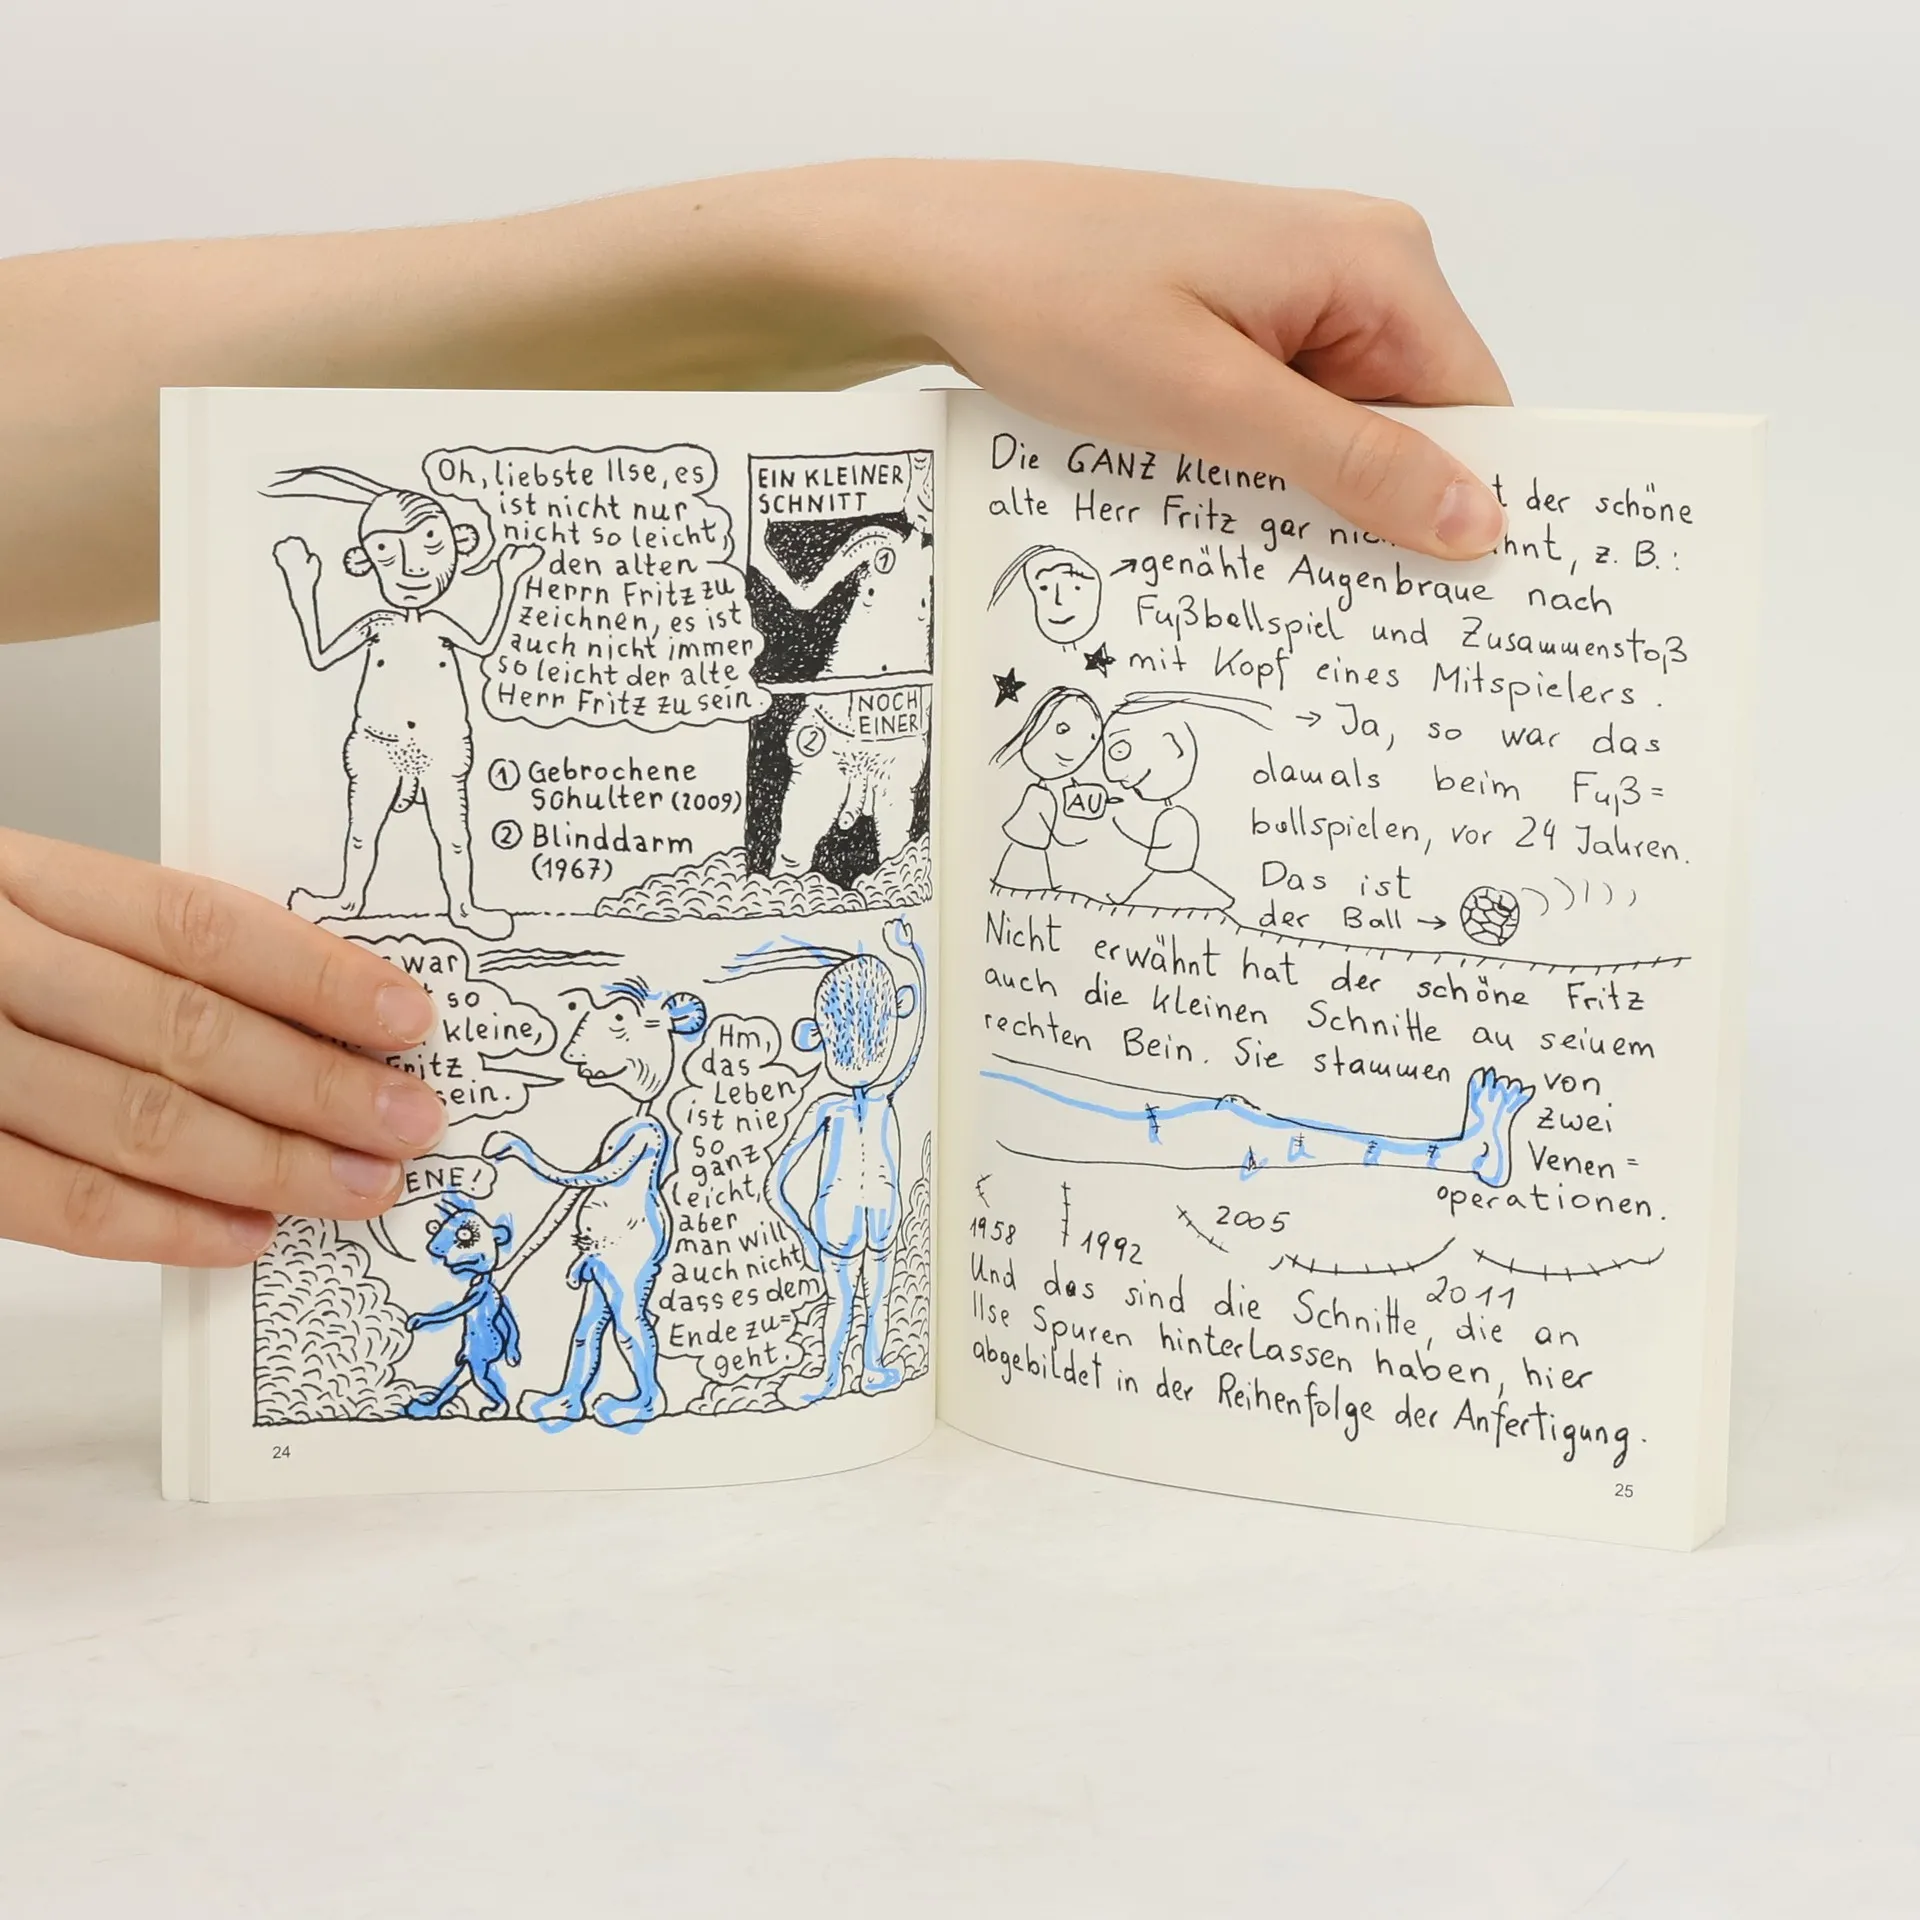 Oh, liebste Ilse, es
ist nicht nur
nicht so leicht,
den alten
Herrn Fritz zu
zeichnen, es ist
auch nicht immer
so leicht der alte
Herr Fritz zu sein.
EIN KLEINER
SCHNITT
1
NOCH
EINER
2
1 Gebrochene
Schulter (2009)
2 Blinddarm
(1967)
war
so
kleine,
Fritz
sein.
ENE!
Hm,
das
Leben
ist nie
so
ganz
leicht,
aber
man will
auch nicht,
dass es dem
Ende zu=
geht.
24
Die GANZ kleinen der schöne
alte Herr Fritz gar z. B.:
→ genähte Augenbraue nach
Fußballspiel und Zusammenstoß
mit Kopf eines Mitspielers.
→ Ja, so war das
damals beim Fuß=
ballspielen, vor 24 Jahren.
AU
Das ist
der Ball →
Nicht erwähnt hat der schöne Fritz
auch die kleinen Schnitte an seinem
rechten Bein. Sie stammen von
zwei
Venen=
operationen.
1958
1992
2005
2011
Und das sind die Schnitte, die an
Ilse Spuren hinterlassen haben, hier
abgebildet in der Reihenfolge der Anfertigung.
25